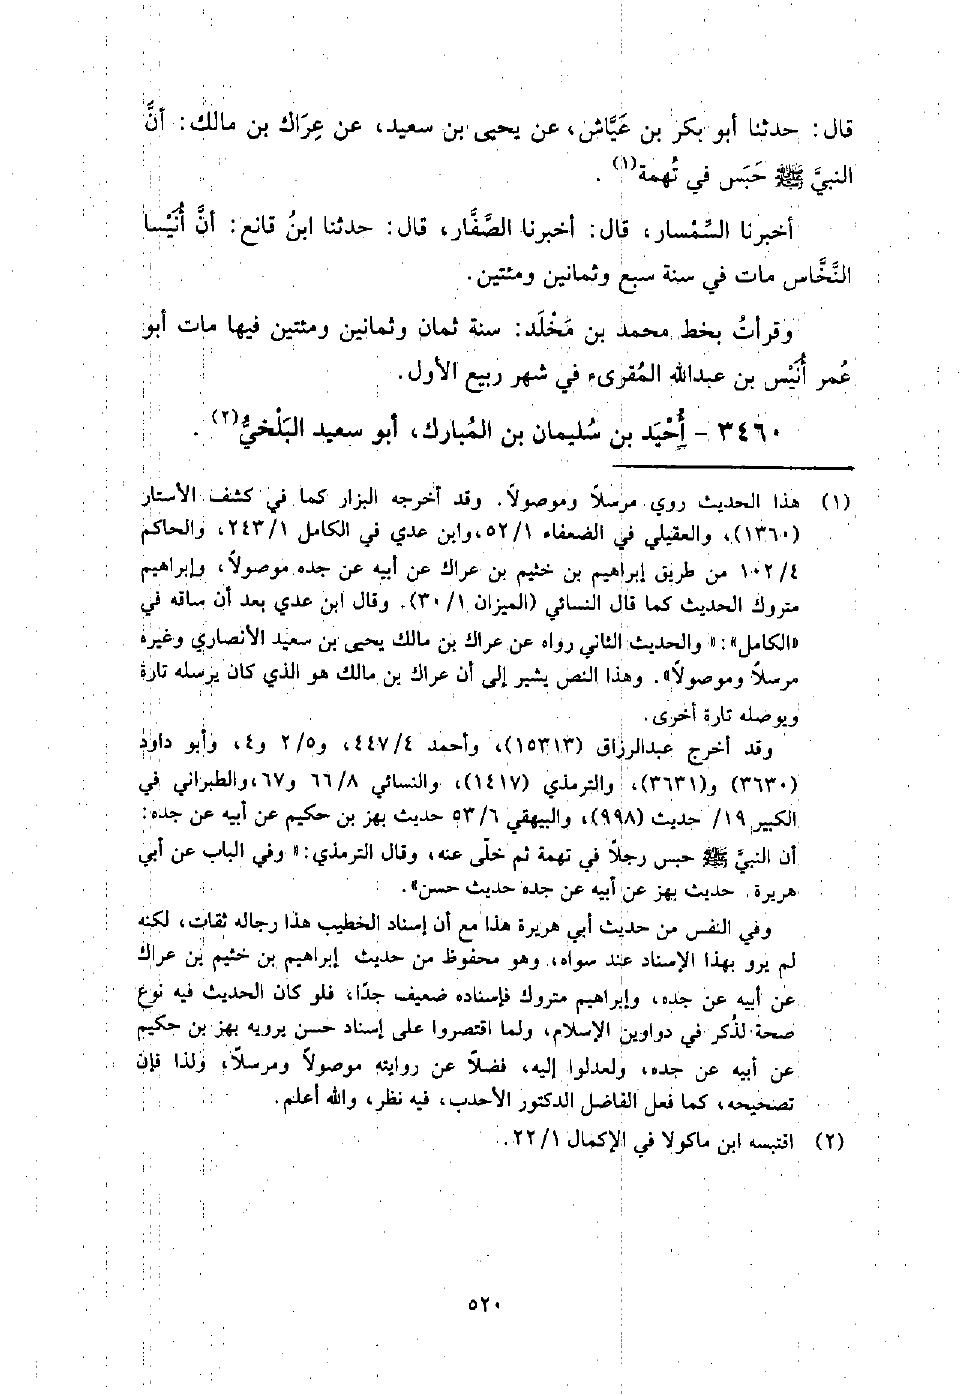 قال: حدثنا أبو بكر بن عَيَّاش، عن يحيى بن سعيد، عن عِرَاك بن مالك: أنَّ
النبيَّ ﷺ حَبَس في تُهمة(١) .
أخبرنا السِّمْسار، قال: أخبرنا الصَّفَّار، قال: حدثنا ابنُ قانع: أنَّ أُنَيْسا
النَّخَّاس مات في سنة سبع وثمانين ومئتين.
وقرأتُ بخط محمد بن مَخْلَد: سنة ثمان وثمانين ومئتين فيها مات أبو
عُمر أُنَيْس بن عبدالله المُقرىء في شهر ربيع الأول.
٣٤٦٠ - أُحْيَد بن سُليمان بن المُبارك، أبو سعيد البَلْخيُّ(٢) .
(١) هذا الحديث روي مرسلاً وموصولاً. وقد أخرجه البزار كما في كشف الأستار
(١٣٦٠)، والعقيلي في الضعفاء ٥٢/١،وابن عدي في الكامل ٢٤٣/١، والحاكم
١٠٢/٤ من طريق إبراهيم بن خثيم بن عراك عن أبيه عن جده موصولاً، وإبراهيم
متروك الحديث كما قال النسائي (الميزان ٣٠/١). وقال ابن عدي بعد أن ساقه في
«الكامل»:« والحديث الثاني رواه عن عراك بن مالك يحيى بن سعيد الأنصاري وغيره
مرسلاً وموصولاً». وهذا النص يشير إلى أن عراك بن مالك هو الذي كان يرسله تارة
ويوصله تارة أخرى.
وقد أخرج عبدالرزاق (١٥٣١٣)، وأحمد ٤٤٧/٤، و٢/٥ و٤، وأبو داود
(٣٦٣٠) و(٣٦٣١)، والترمذي (١٤١٧)، والنسائي ٦٦/٨ و٦٧،والطبراني في
الكبير ١٩/ حديث (٩٩٨)، والبيهقي ٥٣/٦ حديث بهز بن حكيم عن أبيه عن جده:
أن النبيَّ ﷺ حبس رجلاً في تهمة ثم خلّى عنه، وقال الترمذي:« وفي الباب عن أبي
هريرة. حديث بهز عن أبيه عن جده حديث حسن».
وفي النفس من حديث أبي هريرة هذا مع أن إسناد الخطيب هذا رجاله ثقات، لكنه
لم يرو بهذا الإسناد عند سواه، وهو محفوظ من حديث إبراهيم بن خثيم بن عراك
عن أبيه عن جده، وإبراهيم متروك فإسناده ضعيف جدًا، فلو كان الحديث فيه نوع
صحة لذُكر في دواوين الإسلام، ولما اقتصروا على إسناد حسن يرويه بهز بن حكيم
عن أبيه عن جده، ولعدلوا إليه، فضلاً عن روايته موصولاً ومرسلاً، ولذا فإن
تصحيحه، كما فعل الفاضل الدكتور الأحدب، فيه نظر، والله أعلم.
(٢) اقتبسه ابن ماكولا في الإكمال ٢٢/١.
٥٢٠